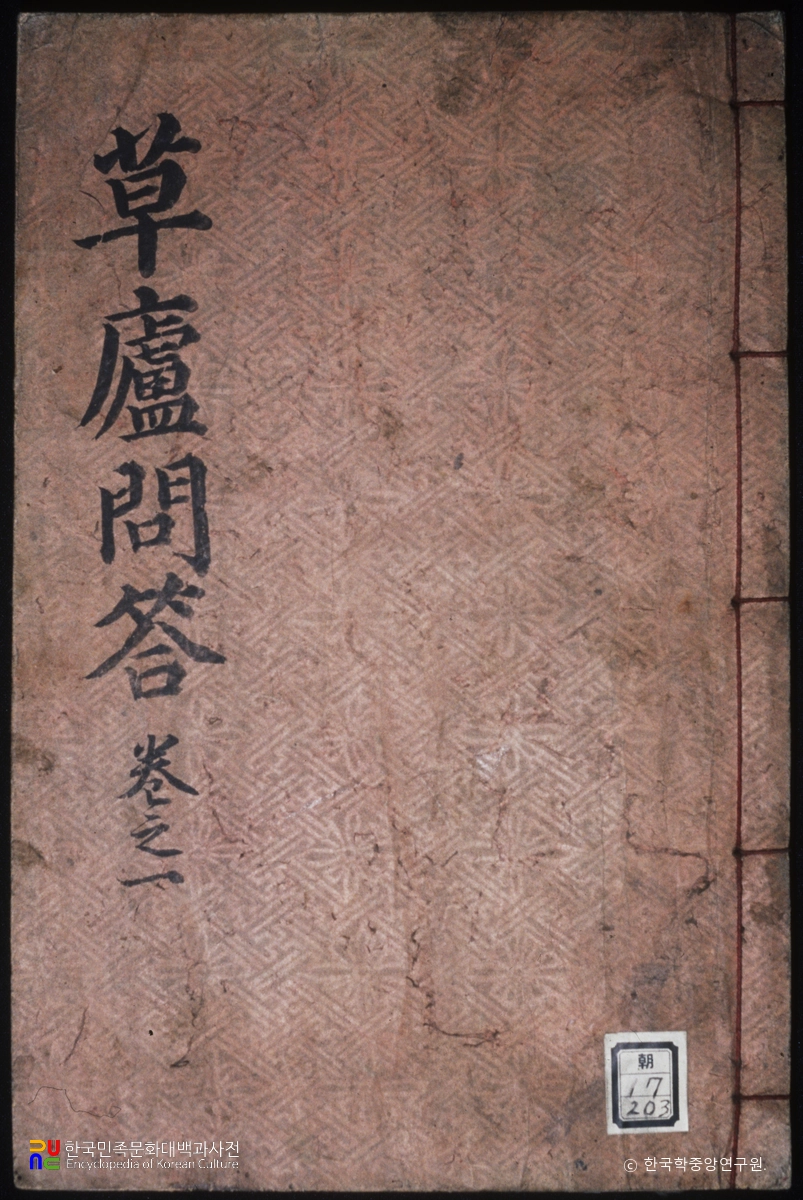 草廬問答 卷之一
朝
17
203
한국민족문화대백과사전
Encyclopedia of Korean Culture
© 한국학중앙연구원.